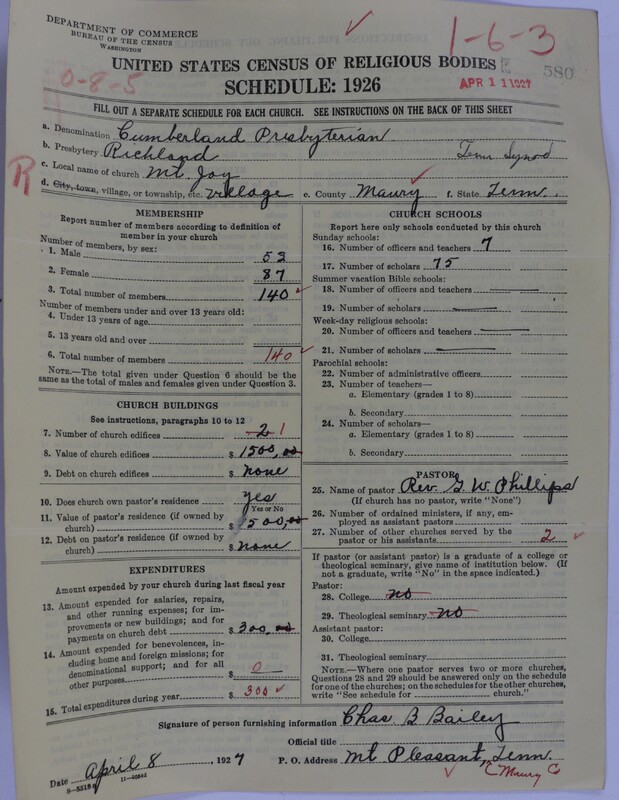 DEPARTMENT OF COMMERCE
BUREAU OF THE CENSUS
WASHINGTON
1-6-3
0-8-5
APR 11 1927
580
UNITED STATES CENSUS OF RELIGIOUS BODIES
SCHEDULE: 1926
FILL OUT A SEPARATE SCHEDULE FOR EACH CHURCH. SEE INSTRUCTIONS ON THE BACK OF THIS SHEET
a. Denomination Cumberland Presbyterian
b. Presbytery Richland Tenn Synod
R
c. Local name of church Mt. Joy
d. City, town, village, or township, etc. Village e. County Maury f. State Tenn.
MEMBERSHIP
Report number of members according to definition of
member in your church
Number of members, by sex:
1. Male 53
2. Female 87
3. Total number of members 140
Number of members under and over 13 years old:
4. Under 13 years of age
5. 13 years old and over
6. Total number of members 140
NOTE.—The total given under Question 6 should be the
same as the total of males and females given under Question 3.
CHURCH BUILDINGS
See instructions, paragraphs 10 to 12
7. Number of church edifices 2 1
8. Value of church edifices $ 1500,00
9. Debt on church edifices $ none
10. Does church own pastor's residence yes
Yes or No
11. Value of pastor's residence (if owned by
church) $ 500,00
12. Debt on pastor's residence (if owned by
church) $ none
EXPENDITURES
Amount expended by your church during last fiscal year
13. Amount expended for salaries, repairs,
and other running expenses; for im-
provements or new buildings; and for
payments on church debt $ 300,00
14. Amount expended for benevolences, in-
cluding home and foreign missions; for
denominational support; and for all
other purposes $ 0
15. Total expenditures during year $ 300
CHURCH SCHOOLS
Report here only schools conducted by this church
Sunday schools:
16. Number of officers and teachers 7
17. Number of scholars 75
Summer vacation Bible schools:
18. Number of officers and teachers
19. Number of scholars
Week-day religious schools:
20. Number of officers and teachers
21. Number of scholars
Parochial schools:
22. Number of administrative officers
23. Number of teachers—
a. Elementary (grades 1 to 8)
b. Secondary
24. Number of scholars—
a. Elementary (grades 1 to 8)
b. Secondary
PASTOR
25. Name of pastor Rev. G. W. Phillips
(If church has no pastor, write "None")
26. Number of ordained ministers, if any, em-
ployed as assistant pastors
27. Number of other churches served by the
pastor or his assistants 2
If pastor (or assistant pastor) is a graduate of a college or
theological seminary, give name of institution below. (If
not a graduate, write "No" in the space indicated.)
Pastor:
28. College no
29. Theological seminary no
Assistant pastor:
30. College
31. Theological seminary
NOTE.—Where one pastor serves two or more churches,
Questions 28 and 29 should be answered only on the schedule
for one of the churches; on the schedules for the other churches,
write "See schedule for church."
Signature of person furnishing information Chas B Bailey
Official title
Date April 8, 1927 P. O. Address Mt Pleasant, Tenn.
(Maury Co